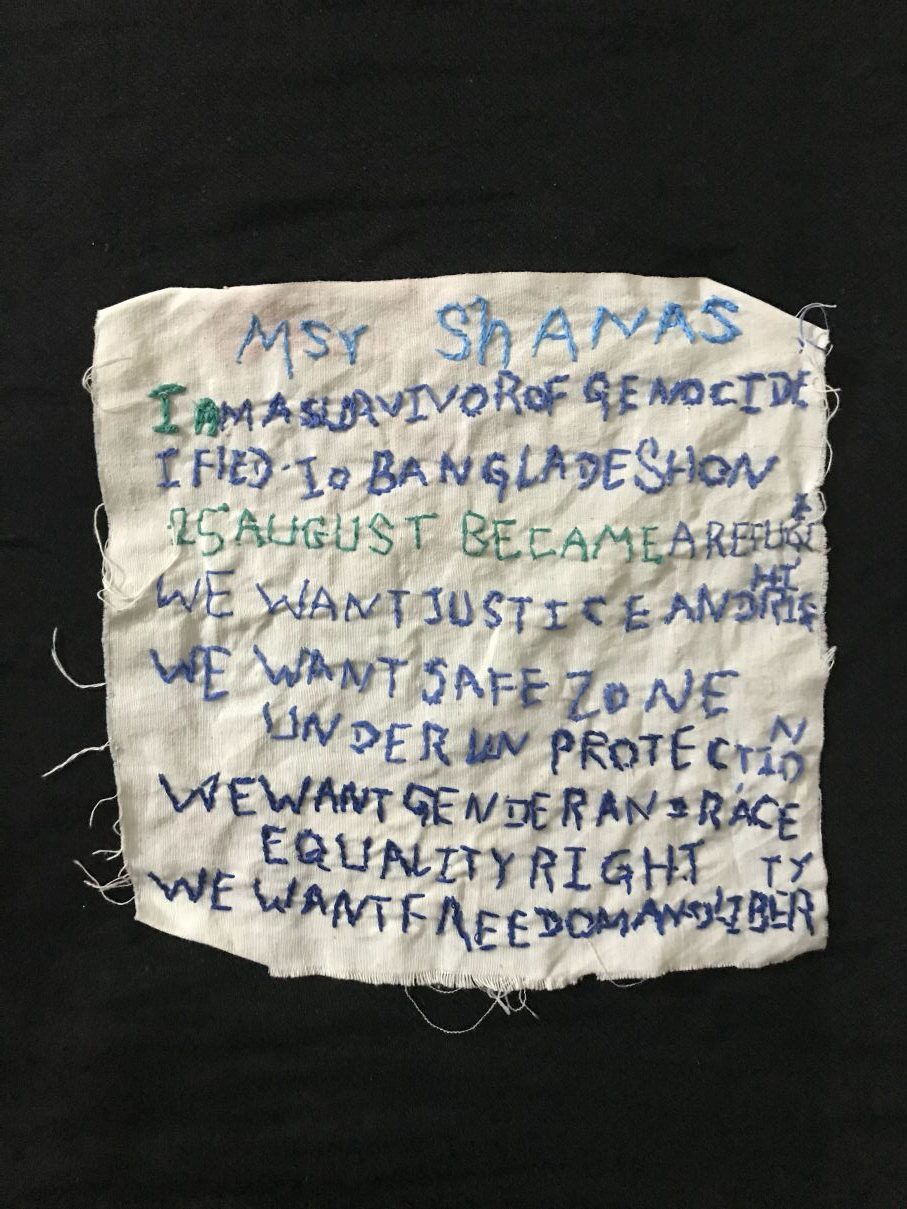 MSr ShANAS
I AM A SURVIVOR OF GENOCIDE
I FlED To BANGLADESH ON
25 AUGUST BECAME A REFUGE
WE WANT JUSTICE AND RIE HT
WE WANT SAFE ZoNE
UNDER UN PROTECTIO N
WE WANT GENDER AND RACE
EQUALITY RIGHT
WE WANT FREEDOM AND LIBER TY